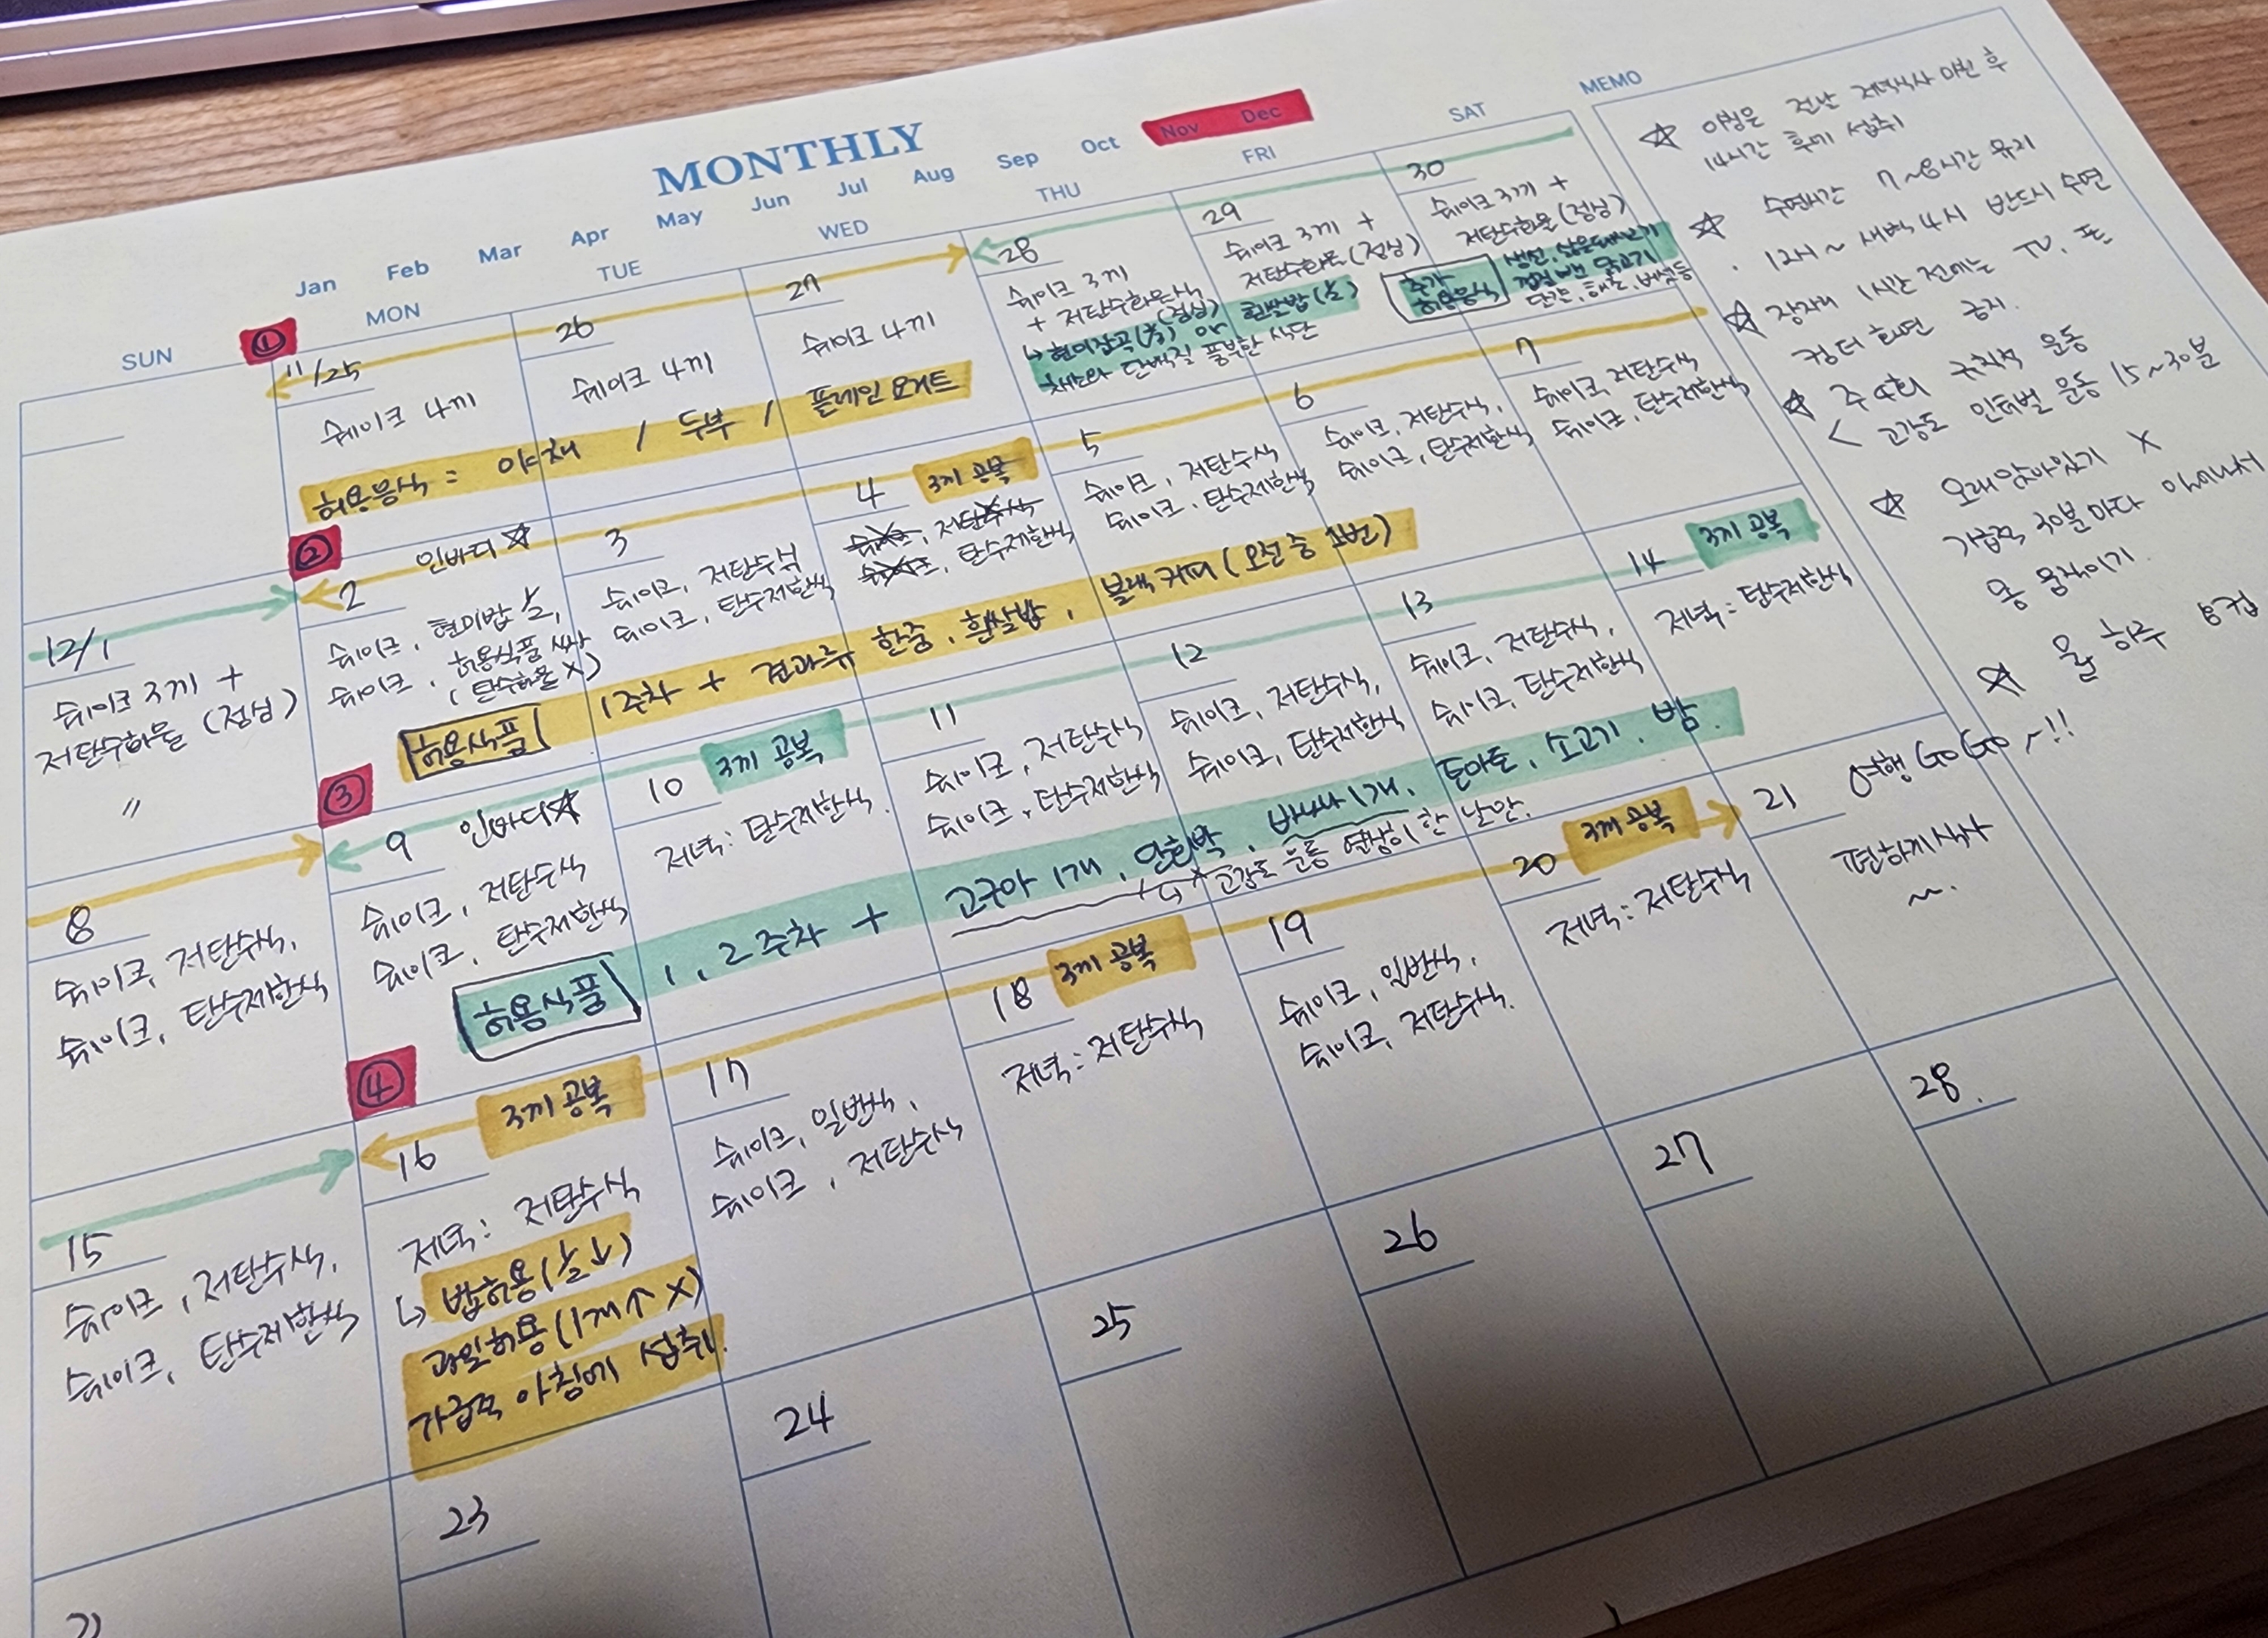 MONTHLY
Jan Feb Mar Apr May Jun Jul Aug Sep Oct Nov Dec
SUN MON TUE WED THU FRI SAT MEMO
①
11/25
쉐이크 4끼
26
쉐이크 4끼
27
쉐이크 4끼
허용음식 = 야채 / 두부 / 플레인 요거트
28
쉐이크 3끼
+ 저탄수화물식
(점심)
↳ 현미잡곡(⅔) or 흰쌀밥(½)
채소와 단백질 풍부한 식단
29
쉐이크 3끼 +
저탄수화물(점심)
30
쉐이크 3끼 +
저탄수화물(점심)
추가
허용음식
생선, 삶은돼지고기
껍질 뺀 닭고기
단각, 해초, 버섯등
12/1
쉐이크 3끼 +
저탄수화물 (점심)
〃
②
2 인바디☆
쉐이크, 현미밥 ½,
허용식품 쌈
쉐이크,
(탄수화물 X)
3
쉐이크, 저탄수식
쉐이크, 탄수제한식
4 3끼 공복
쉐이크, 저탄수식
쉐이크, 탄수제한식
5
쉐이크, 저탄수식
쉐이크, 탄수제한식
6
쉐이크, 저탄수식,
쉐이크, 탄수제한식
7
쉐이크, 저탄수식
쉐이크, 탄수제한식
허용식품 1주차 + 견과류 한줌, 흰쌀밥, 블랙커피 (오전 중 1번)
8
쉐이크, 저탄수식,
쉐이크, 탄수제한식
③
9 인바디☆
쉐이크, 저탄수식
쉐이크, 탄수제한식
10 3끼 공복
저녁: 탄수제한식.
11
쉐이크, 저탄수식
쉐이크, 탄수제한식
12
쉐이크, 저탄수식,
쉐이크, 탄수제한식
13
쉐이크, 저탄수식,
쉐이크, 탄수제한식
14 3끼 공복
저녁: 탄수제한식
허용식품 1, 2주차 + 고구마 1개, 단호박, 바나나 1개, 토마토, 소고기, 밤.
↳ 고강도 운동 열심히 한 날만.
15
쉐이크, 저탄수식,
쉐이크, 탄수제한식
④
16 3끼 공복
저녁: 저탄수식
↳ 밥허용(½↓)
과일허용(1개↑ X)
가급적 아침에 섭취.
17
쉐이크, 일반식,
쉐이크, 저탄수식
18 3끼 공복
저녁: 저탄수식
19
쉐이크, 일반식,
쉐이크, 저탄수식.
20 3끼 공복
저녁: 저탄수식
21 여행 GoGo~!!
편하게식사
~.
23
24
25
26
27
28.
☆ 아침은 전날 저녁식사 마친 후
14시간 후에 섭취
☆ 수면시간 7~8시간 유지
· 12시~ 새벽 4시 반드시 수면
☆ 잠자기 1시간 전에는 TV, 폰
컴터 화면 금지.
☆ 주4회 규칙적 운동
< 고강도 인터벌 운동 15~30분
☆ 오래앉아있기 X
가급적 30분마다 일어나서
몸 움직이기.
☆ 물 하루 8컵